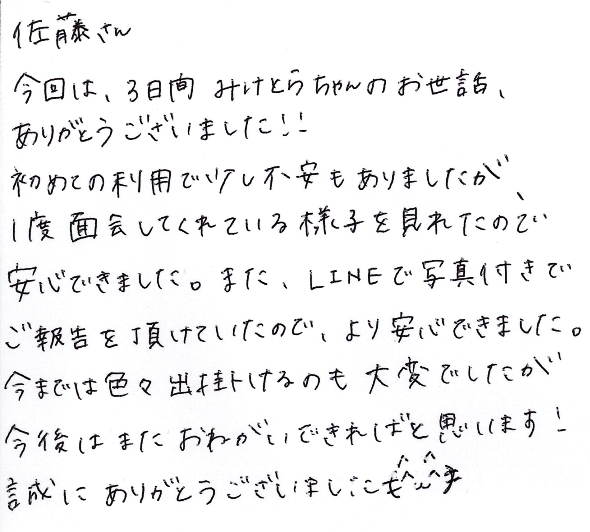 佐藤さん
今回は、3日間 みけとらちゃんのお世話、
ありがとうございました!!
初めての利用で少し不安もありましたが、
1度面会してくれている様子を見れたので
安心できました。また、LINEで写真付きで
ご報告を頂けていたので、より安心できました。
今までは色々出掛けるのも大変でしたが
今後はまたおねがいできればと思います!
誠にありがとうございました